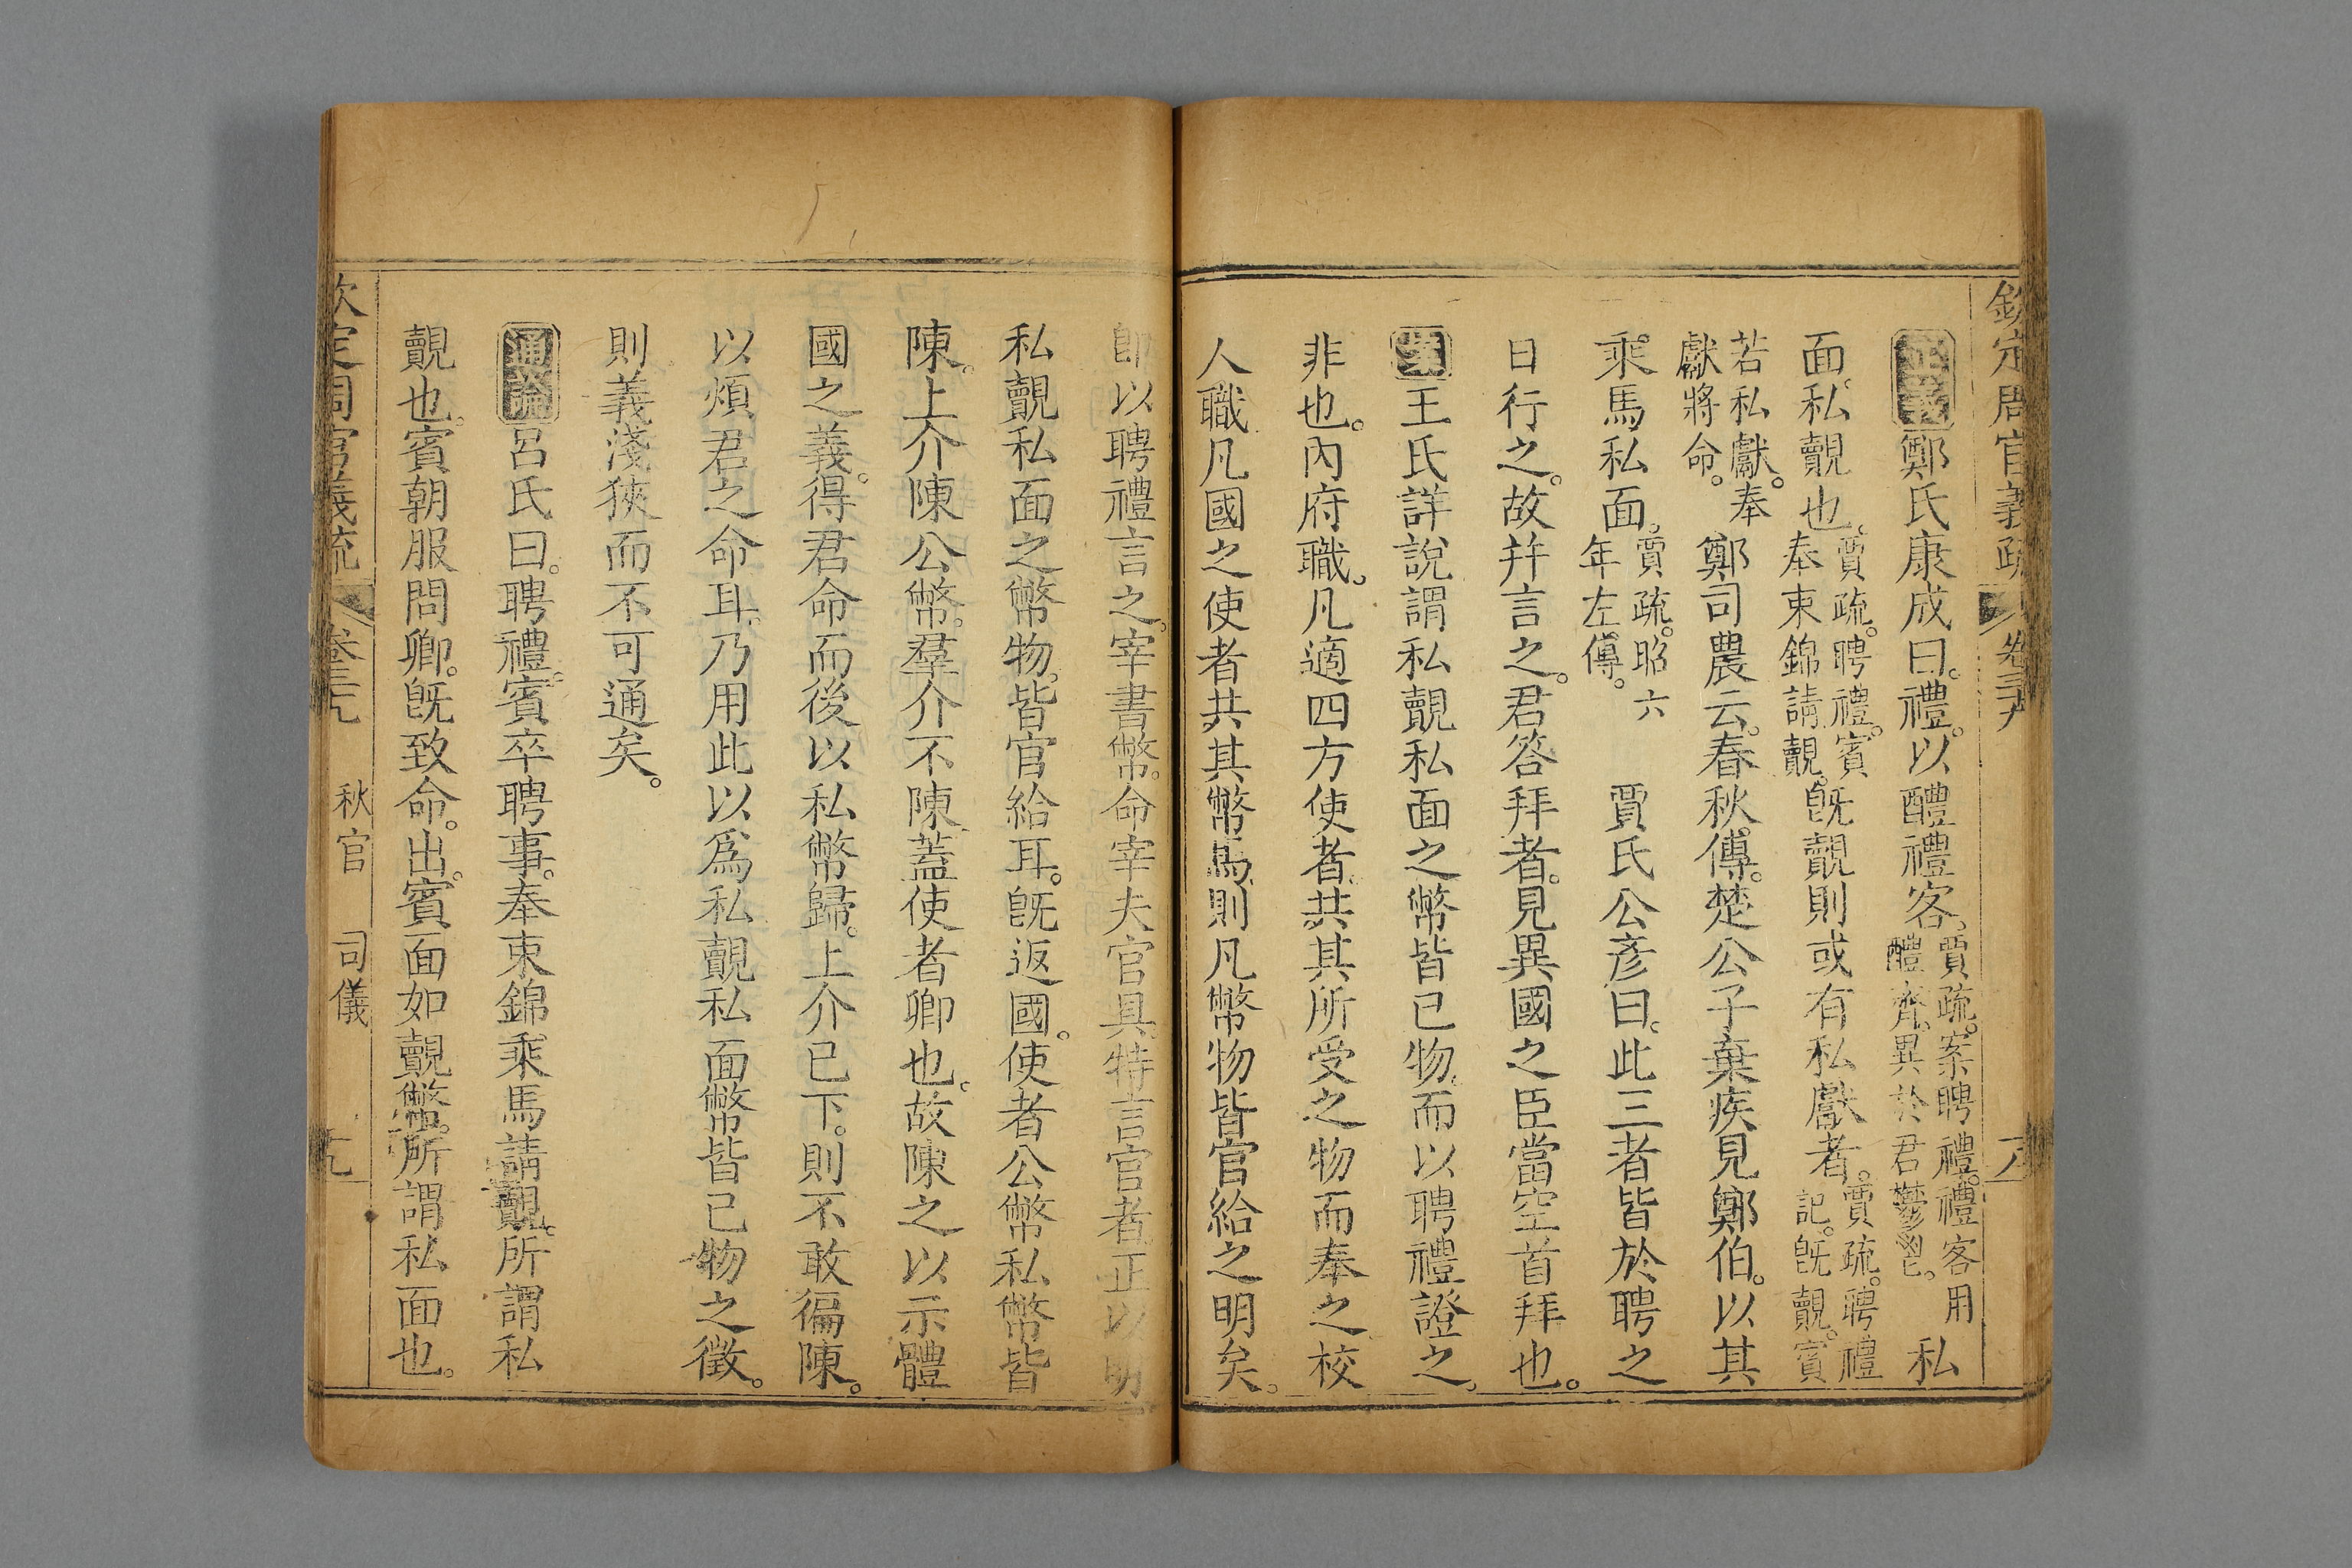 欽定周官義疏 卷三十九 十八
正義鄭氏康成曰。禮。以醴禮客。賈疏。案聘禮。禮客用醴齊。異於君鬱鬯。私
面。私覿也。賈疏。聘禮。賓奉束錦請覿。旣覿則或有私獻者。賈疏。聘禮記。旣覿。賓
若私獻。奉獻將命。鄭司農云。春秋傳。楚公子棄疾見鄭伯。以其
乘馬私面。賈疏。昭六年左傳。賈氏公彥曰。此三者皆於聘之
日行之。故幷言之。君答拜者。見異國之臣當空首拜也。
案王氏詳說謂私覿私面之幣皆已物。而以聘禮證之。
非也。內府職。凡適四方使者。共其所受之物而奉之。校
人職凡國之使者共其幣馬。則凡幣物皆官給之明矣。
卽以聘禮言之。宰書幣。命宰夫官具。特言官者。正以明
私覿私面之幣物。皆官給耳。旣返國。使者公幣私幣皆
陳。上介陳公幣。羣介不陳。蓋使者卿也。故陳之以示體
國之義。得君命而後以私幣歸。上介已下。則不敢徧陳。
以煩君之命耳。乃用此以爲私覿私面幣皆已物之徵。
則義淺狹而不可通矣。
通論呂氏曰。聘禮。賓卒聘事。奉束錦乘馬請覿。所謂私
覿也。賓朝服問卿。旣致命。出。賓面如覿幣。所謂私面也。
欽定周官義疏 卷三十九 秋官 司儀 十九